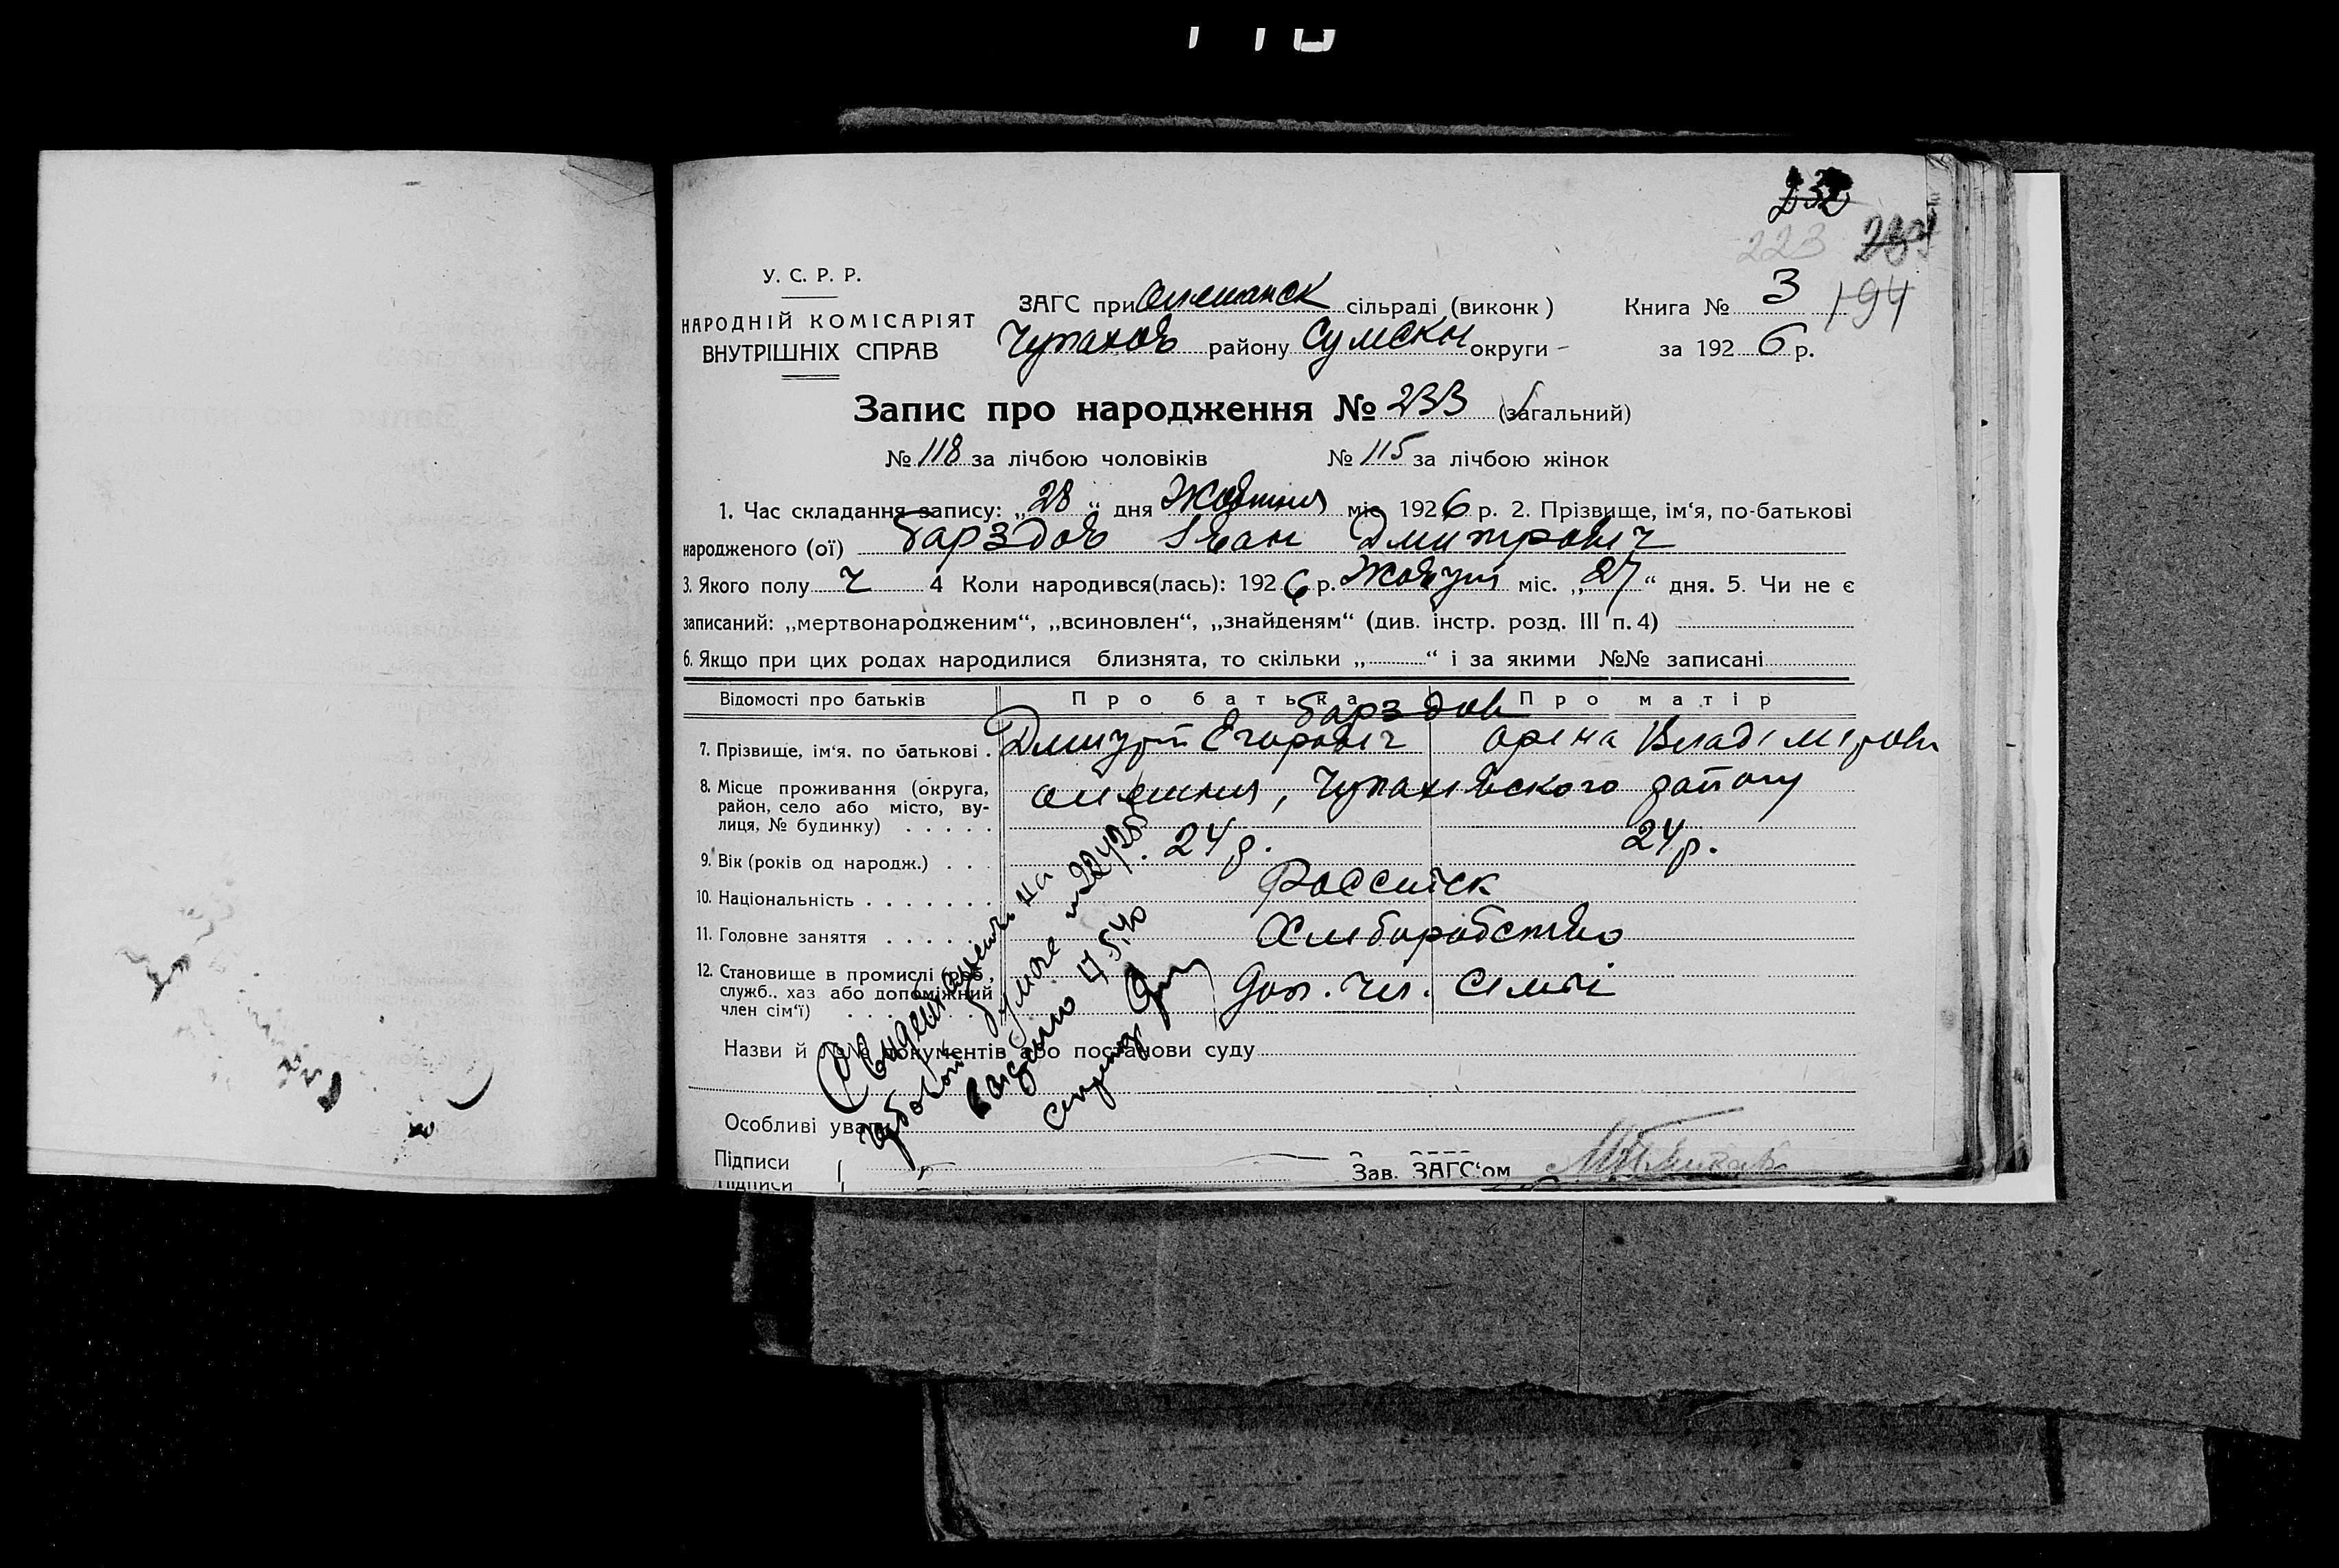 232
223 234
У. С. Р. Р.
НАРОДНІЙ КОМІСАРІЯТ
ВНУТРІШНІХ СПРАВ
ЗАГС при Олешанск сільраді (виконк)
Чупахов району Сумскы округи
Книга № 3
194
за 1926 р.
Запис про народження № 233 (загальний)
№ 118 за лічбою чоловіків № 115 за лічбою жінок
1. Час складання запису: „28“ дня Жовтня міс 1926 р. 2. Прізвище, ім‘я, по-батькові
народженого (ої) Барздов Іван Дмитровіч
3. Якого полу ч 4 Коли народився(лась): 1926 р. Жовтня міс. „27“ дня. 5. Чи не є
записаний: „мертвонародженим“, „всиновлен“, „знайденям“ (див. інстр. розд. III п. 4)
6. Якщо при цих родах народилися близнята, то скільки „ “ і за якими №№ записані
Відомості про батьків Про батька Про матір
Барздов
7. Прізвище, ім‘я. по батькові . Дмитрий Єгоровіч Орина Владімірови
8. Місце проживання (округа,
район, село або місто, ву-
лиця, № будинку) . . . . .
Олешня, Чупахівского району
9. Вік (років од народж.) . . . 24 р. 24 р.
10. Національність . . . . . . . Россійск
11. Головне заняття . . . . . Хлиборобство
12. Становище в промислі (роб.,
служб., хаз або допоміжний
член сім‘ї) . . . . . . .
Доп. чл. семьі
Свидетельство на
гербовой бумаге № 224255
выдано 17 5.40
секретарь
Назви й №№ документів або постанови суду
Особливі уваги
Підписи
Зав. ЗАГС‘ом
Підписи